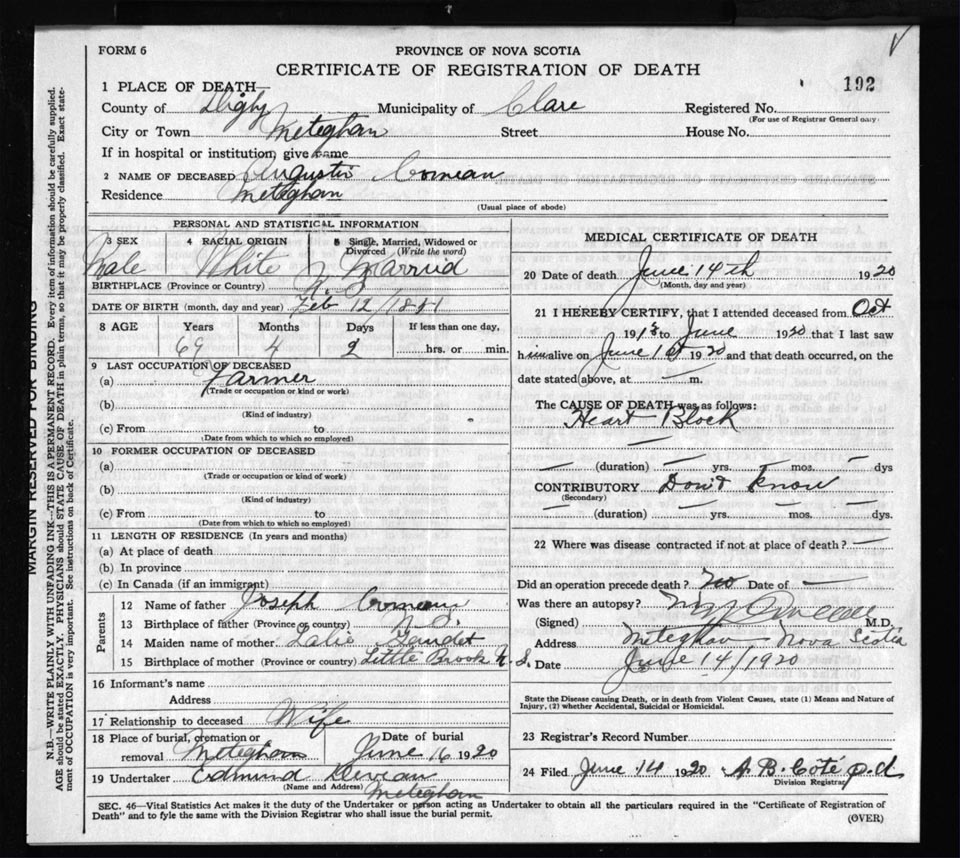 FORM 6
PROVINCE OF NOVA SCOTIA
CERTIFICATE OF REGISTRATION OF DEATH
192
1 PLACE OF DEATH—
County of Digby Municipality of Clare Registered No.
(For use of Registrar General only)
City or Town Meteghan Street House No.
If in hospital or institution, give name
2 NAME OF DECEASED Augustin Comeau
Residence Meteghan
(Usual place of abode)
PERSONAL AND STATISTICAL INFORMATION
3 SEX 4 RACIAL ORIGIN 5 Single, Married, Widowed or Divorced (Write the word)
Male White Married
BIRTHPLACE (Province or Country) N. S.
DATE OF BIRTH (month, day and year) Feb 12/1851
8 AGE Years Months Days If less than one day,
69 4 2 hrs. or min.
9 LAST OCCUPATION OF DECEASED
(a) Farmer
(Trade or occupation or kind or work)
(b)
(Kind of industry)
(c) From to
(Date from which to which so employed)
10 FORMER OCCUPATION OF DECEASED
(a)
(Trade or occupation or kind of work)
(b)
(Kind of industry)
(c) From to
(Date from which to which so employed)
11 LENGTH OF RESIDENCE (In years and months)
(a) At place of death
(b) In province
(c) In Canada (if an immigrant)
Parents
12 Name of father Joseph Comeau
13 Birthplace of father (Province or country) N. S.
14 Maiden name of mother Gaudet
15 Birthplace of mother (Province or country) Little Brook N. S.
16 Informant's name
Address
17 Relationship to deceased Wife
18 Place of burial, cremation or removal Meteghan Date of burial June 16 1920
19 Undertaker Edmund
(Name and Address) Meteghan
MEDICAL CERTIFICATE OF DEATH
20 Date of death June 14th 1920
(Month, day and year)
21 I HEREBY CERTIFY, that I attended deceased from Oct
191 to June 1920 that I last saw
him alive on June 1st 1920 and that death occurred, on the
date stated above, at — m.
The CAUSE OF DEATH was as follows:
Heart Block
—
— (duration) — yrs. — mos. — dys
CONTRIBUTORY Don't Know
(Secondary)
— (duration) — yrs. — mos. — dys.
22 Where was disease contracted if not at place of death? —
Did an operation precede death? No Date of —
Was there an autopsy? No
(Signed) M.D.
Address Meteghan Nova Scotia
Date June 14/1920
State the Disease causing Death, or in death from Violent Causes, state (1) Means and Nature of
Injury, (2) whether Accidental, Suicidal or Homicidal.
23 Registrar's Record Number
24 Filed June 14 1920 A. B. Coté
Division Registrar
SEC. 46—Vital Statistics Act makes it the duty of the Undertaker or person acting as Undertaker to obtain all the particulars required in the "Certificate of Registration of
Death" and to fyle the same with the Division Registrar who shall issue the burial permit.
(OVER)
MARGIN RESERVED FOR BINDING
N.B.—WRITE PLAINLY WITH UNFADING INK—THIS IS A PERMANENT RECORD. Every item of information should be carefully supplied.
AGE should be stated EXACTLY. PHYSICIANS should STATE CAUSE OF DEATH in plain terms, so that it may be properly classified. Exact statement of OCCUPATION is very important. See instructions on back of Certificate.